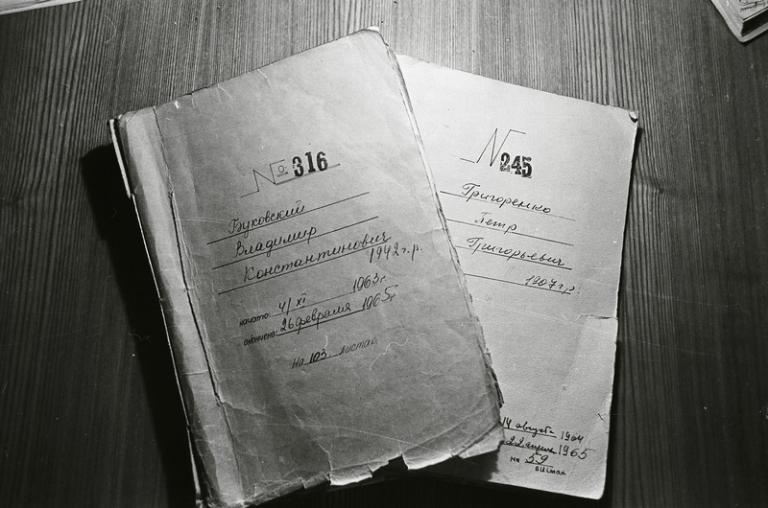 № 316
Буковский
Владимир
Константинович
1942 г.р.
начато: 4/XI 1963 г.
окончено: 26 февраля 1965 г
На 103 листах
N 245
Григоренко
Петр
Григорьевич
1907 г.р.
14 августа 1964
22 апреля 1965
на 59
листах